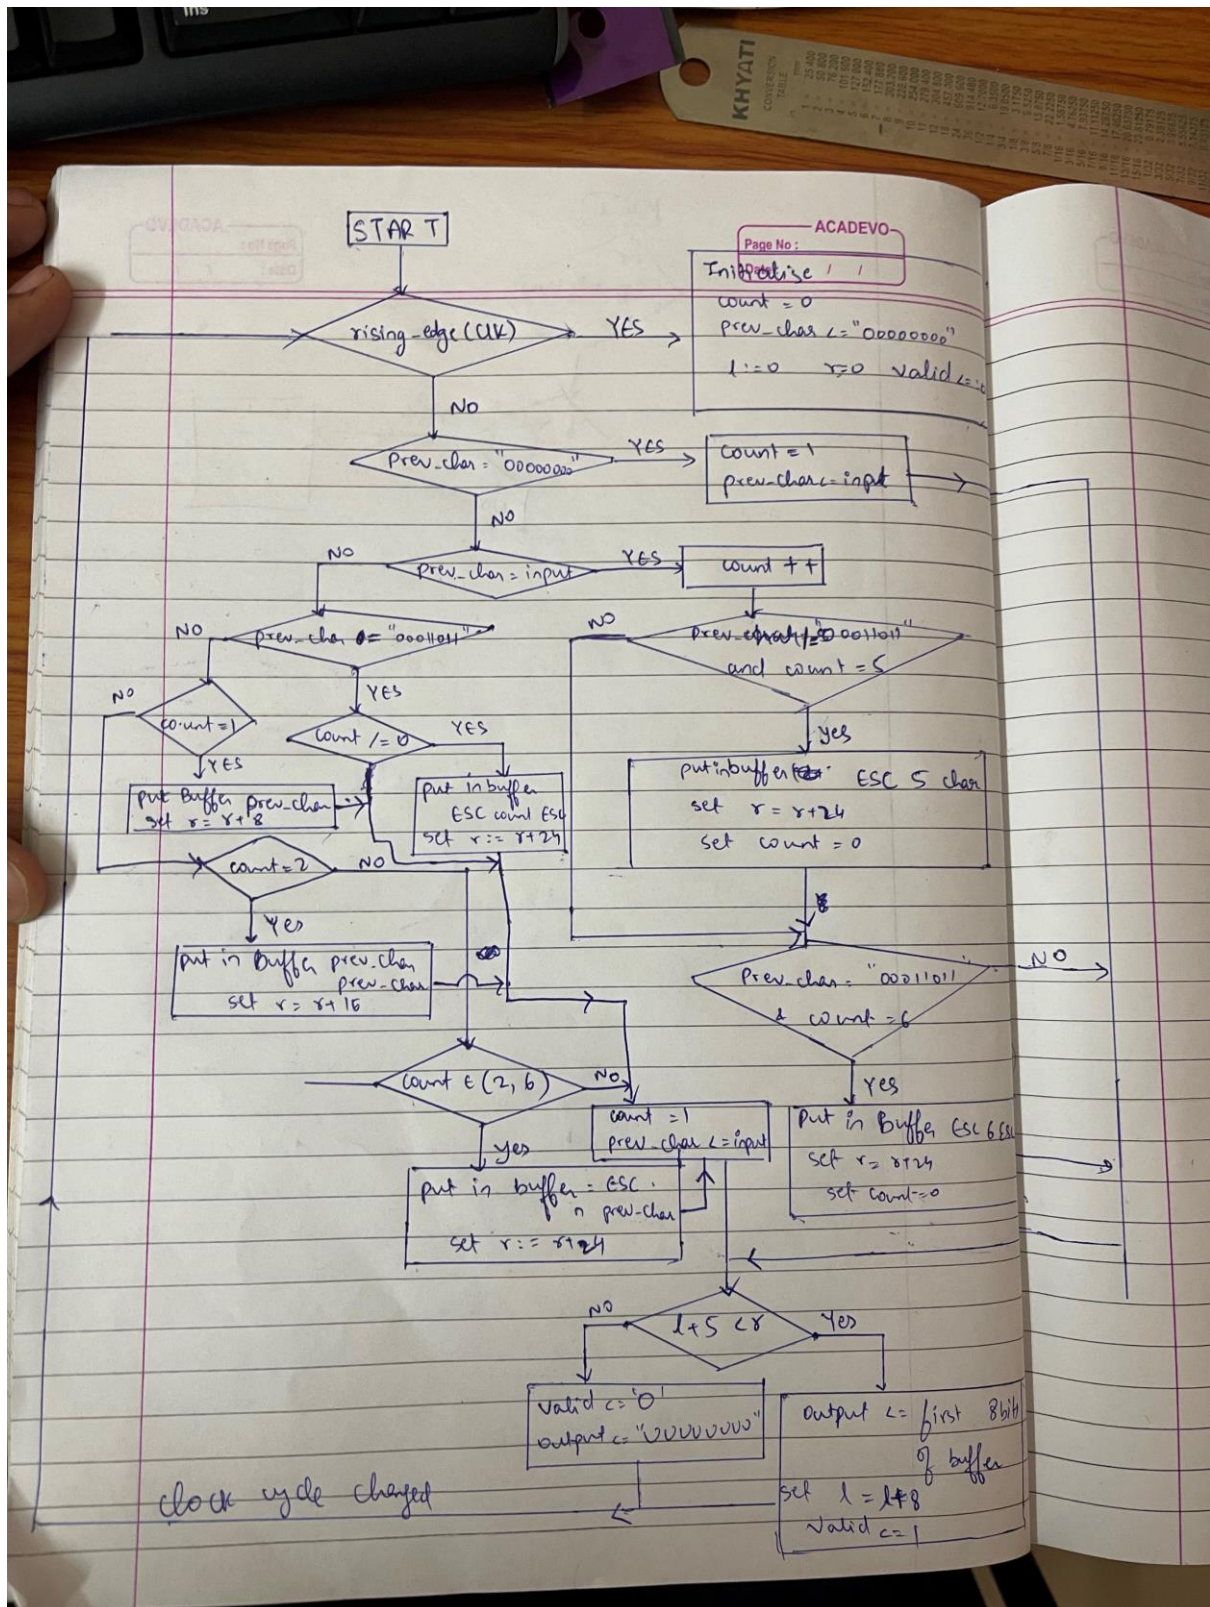 Ins
KHYATI
CONVERSION
TABLE
ACADEVO
Page No :
Date
START
Initialise
count = 0
prev_char <= "00000000"
l := 0 r=0 valid <=
rising_edge (CLK)
YES
NO
prev_char = "00000000"
YES
count = 1
prev_char <= input
NO
NO
prev_char = input
YES
count ++
NO
prev_char = "00011011"
NO
"00011011"
and count = 5
NO
count = 1
YES
YES
count /= 0
YES
yes
put Buffer prev_char
set r = r+8
put in buffer
ESC count ESC
set r := r+24
put in buffer ESC 5 char
set r = r+24
set count = 0
count = 2
NO
Yes
put in Buffer prev_char
prev_char
set r = r+16
Prev_char = "00011011"
& count = 6
NO
count ∈ (2, 6)
NO
yes
YES
count = 1
prev_char <= input
Put in Buffer ESC 6 ESC
set r = r+24
set count = 0
put in buffer = ESC .
n prev_char
set r := r+24
NO
l+5 < r
Yes
valid <= '0'
output <= "UUUUUUUU"
output <= first 8bit
of buffer
set l = l+8
valid <= 1
clock cycle changed